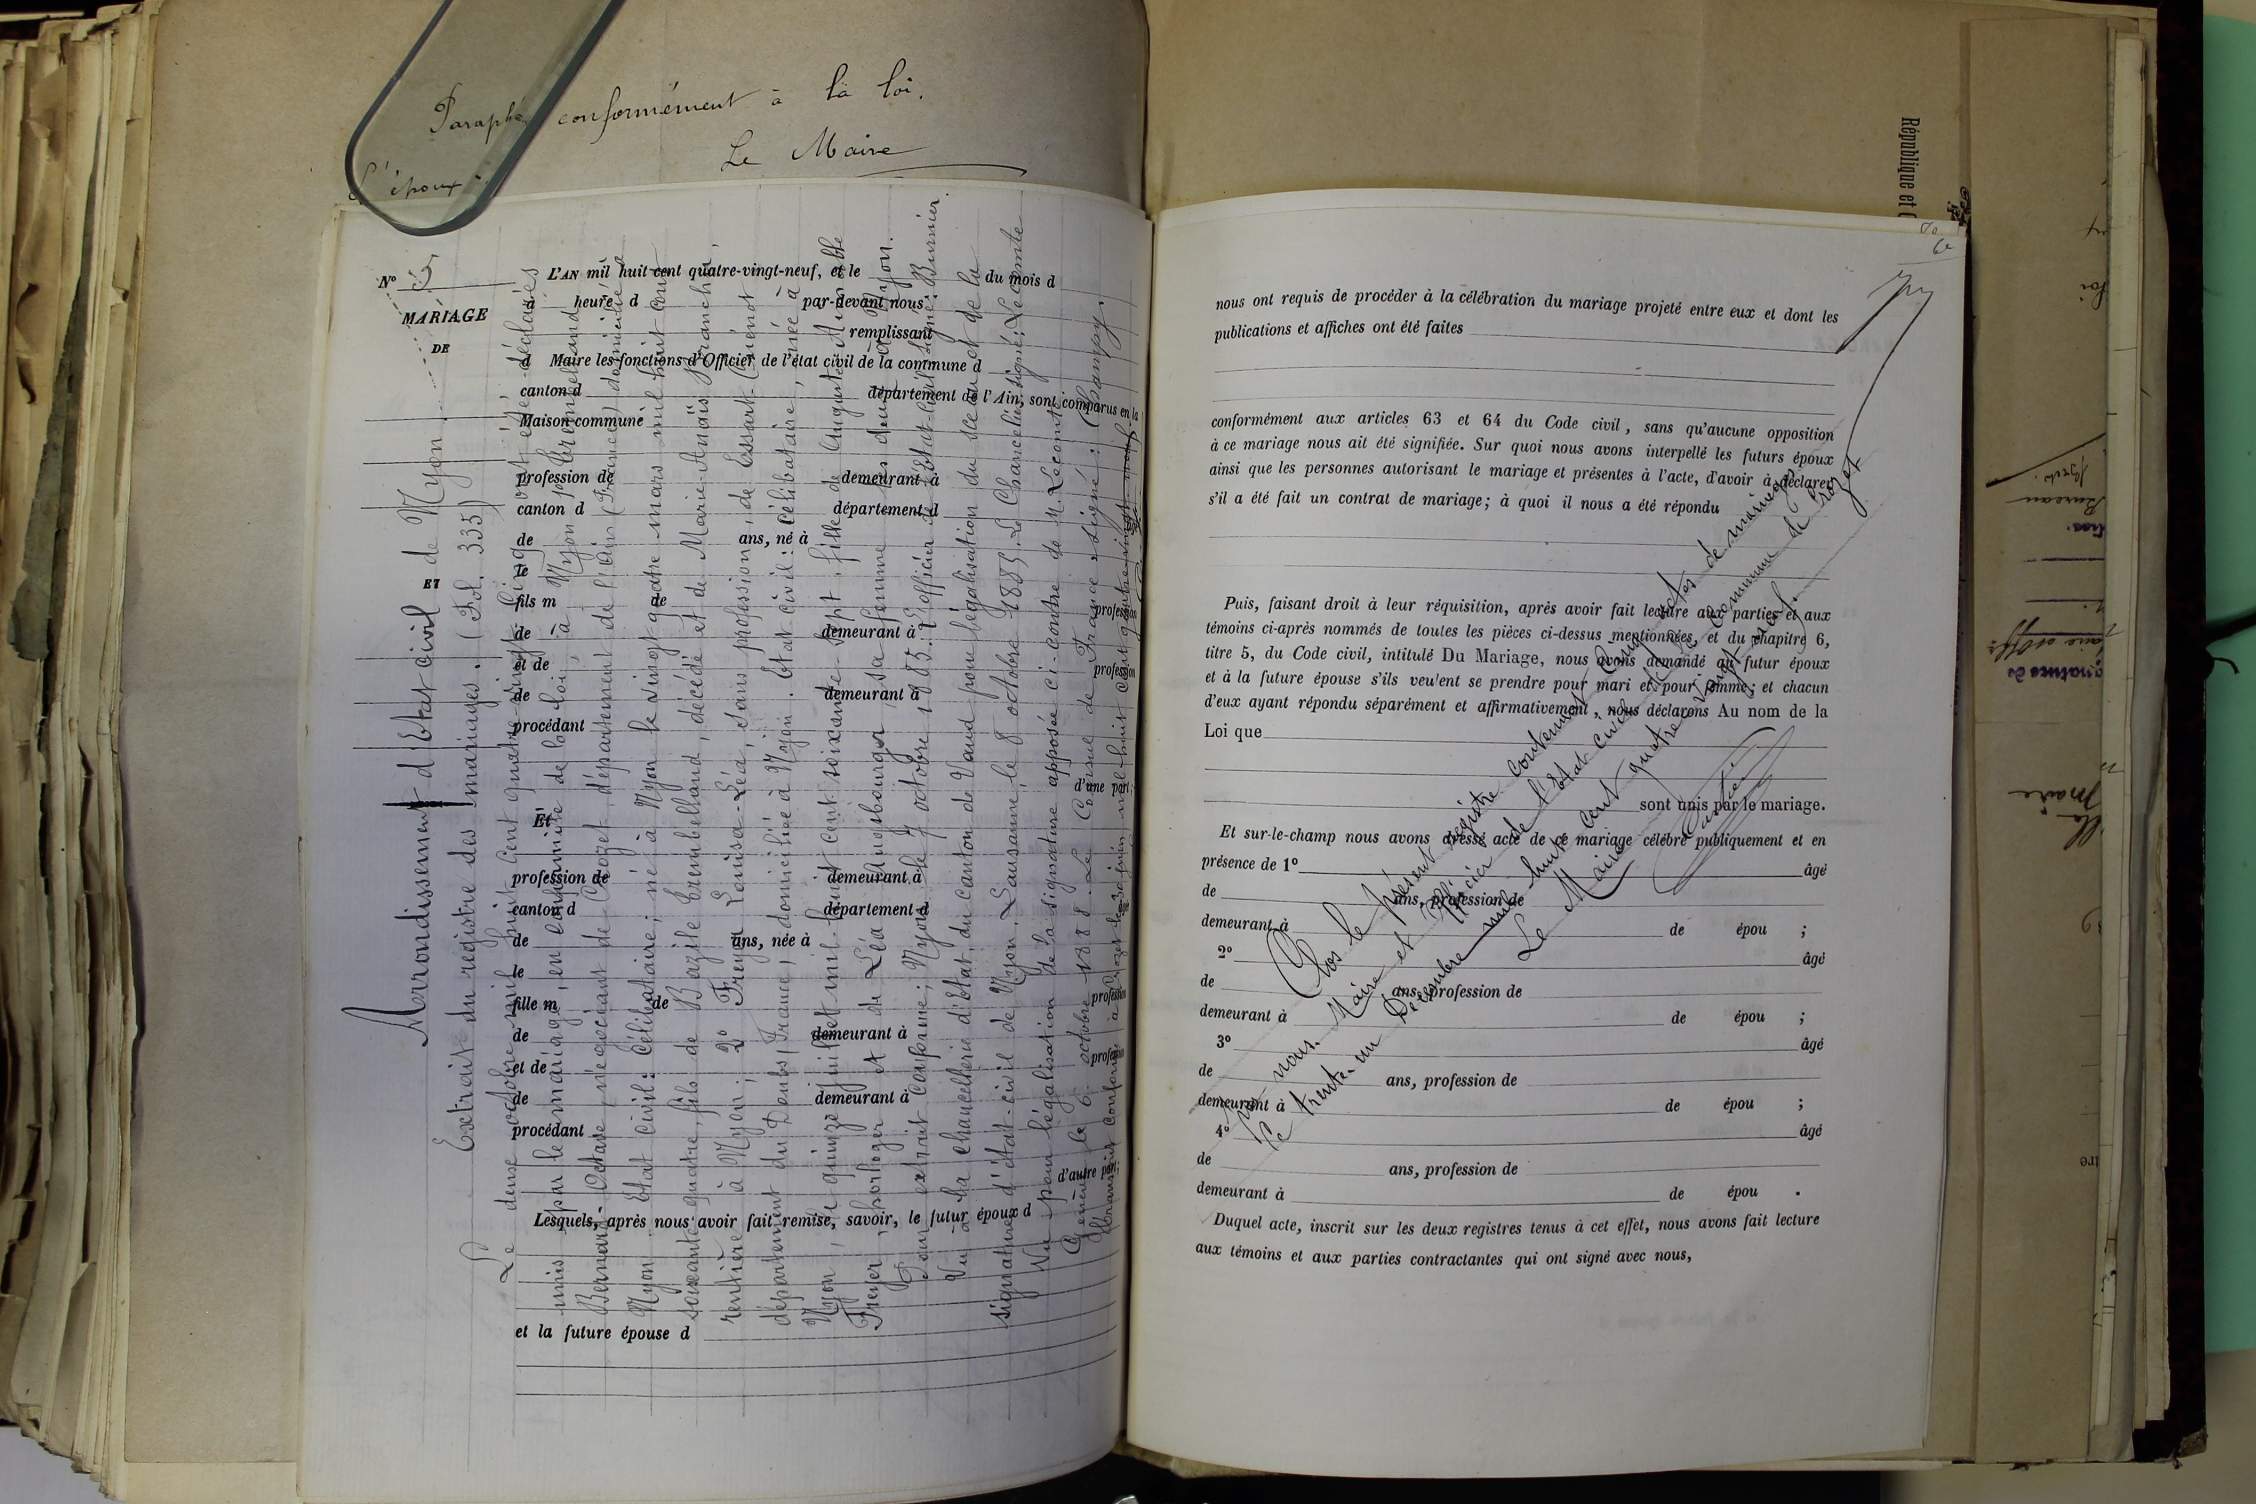 Paraphé conformément à la loi.
Le Maire
L'époux
No 5
MARIAGE
DE
ET
L'AN mil huit cent quatre-vingt-neuf, et le du mois d
à heure d par-devant nous
remplissant
d Maire les fonctions d'Officier de l'état civil de la commune d
canton d département de l'Ain, sont comparus en la
Maison commune
profession de demeurant à
canton d département d
de ans, né à
le
fils m de profession
de demeurant à
et de profession
de demeurant à
procédant
d'une part;
Et
profession de demeurant à
canton d département d
de ans, née à
le
fille m de profession
de demeurant à
et de profession
de demeurant à
procédant
d'autre part;
Lesquels, après nous avoir fait remise, savoir, le futur époux d
et la future épouse d
Arrondissement d'Etat civil de Nyon.
Extrait du registre des mariages. (Fol. 335)
Le douze octobre mil huit cent quatre-vingt-cinq ont été déclarés
unis par le mariage, en conformité de la loi, à Nyon
Bernard Octave, négociant de Crozet, département de l'Ain (France) domicilié à
Nyon. Etat civil: Célibataire; né à Nyon le vingt quatre mars mil huit cent
soixante quatre, fils de Bazile Brembelland, décédé et de Marie-Anaïs Franchi,
rentière à Nyon; 2o Freyer Louisa-Léa, sans profession, de Essart-Cuénot
département du Doubs, France, domiciliée à Nyon. Etat civil: Célibataire, née à
Nyon, le quinze juillet mil-huit cent soixante-sept, fille de Auguste Aimable
Freyer, horloger et de Léa Augsbourger, sa femme les deux à Nyon.
Pour extrait conforme; Nyon le 7 octobre 1885. L'officier de l'Etat-civil signé: Burnier.
Vu à la chancellerie d'état du canton de Vaud pour légalisation du sceau et de la
signature d'état-civil de Nyon. Lausanne, le 8 octobre 1885. Le Chancelier signé: Lecomte
Vu pour légalisation de la signature apposée ci-contre de M. Lecomte
Genève le 6 octobre 1888. Le Consul de France, signé: Champy.
nous ont requis de procéder à la célébration du mariage projeté entre eux et dont les
publications et affiches ont été faites
conformément aux articles 63 et 64 du Code civil, sans qu'aucune opposition
à ce mariage nous ait été signifiée. Sur quoi nous avons interpellé les futurs époux
ainsi que les personnes autorisant le mariage et présentes à l'acte, d'avoir à déclarer
s'il a été fait un contrat de mariage; à quoi il nous a été répondu
Puis, faisant droit à leur réquisition, après avoir fait lecture aux parties et aux
témoins ci-après nommés de toutes les pièces ci-dessus mentionnées, et du chapitre 6,
titre 5, du Code civil, intitulé Du Mariage, nous avons demandé au futur époux
et à la future épouse s'ils veulent se prendre pour mari et pour femme; et chacun
d'eux ayant répondu séparément et affirmativement, nous déclarons Au nom de la
Loi que
sont unis par le mariage.
Et sur-le-champ nous avons dressé acte de ce mariage célébré publiquement et en
présence de 1o âgé
de ans, profession de
demeurant à de épou ;
2o âgé
de ans, profession de
demeurant à de épou ;
3o âgé
de ans, profession de
demeurant à de épou ;
4o âgé
de ans, profession de
demeurant à de épou .
Duquel acte, inscrit sur les deux registres tenus à cet effet, nous avons fait lecture
aux témoins et aux parties contractantes qui ont signé avec nous,
Clos le présent registre contenant cinq actes de mariage
par nous, Maire et Officier de l'état civil de la Commune de Crozet
le trente-un Décembre mil huit cent quatre vingt neuf.
Le Maire
République et C
Bureau
Maire